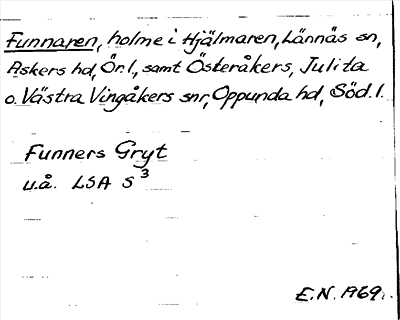 Funnaren, holme i Hjälmaren, Lännäs sn,
Askers hd, Ör.l., samt Österåkers, Julita
o. Västra Vingåkers snr, Oppunda hd, Söd.l.
Funners Gryt
u.å. LSA S³
E.N. 1969.